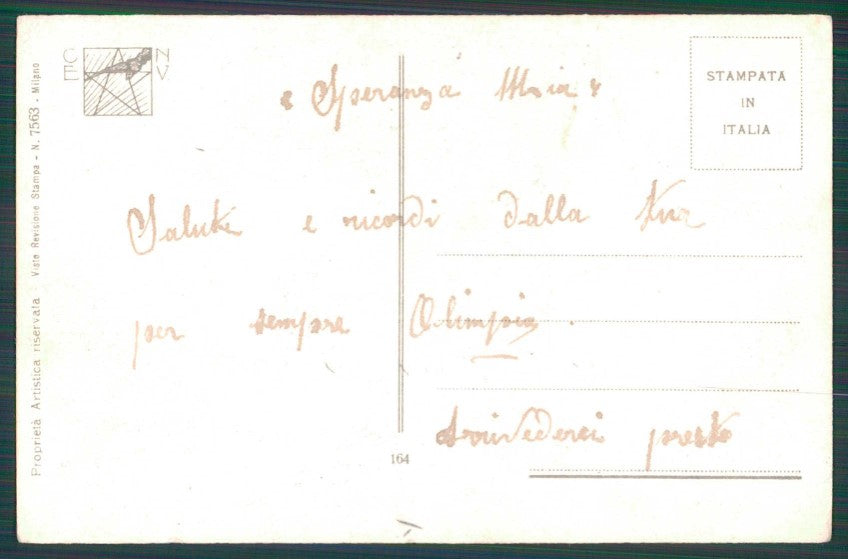 « Speranza Mia »
Saluti e ricordi dalla
per sempre Olimpia.
Arrivederci presto
STAMPATA
IN
ITALIA
164
Proprietà Artistica riservata - Visto Revisione Stampa - N. 7563 - Milano